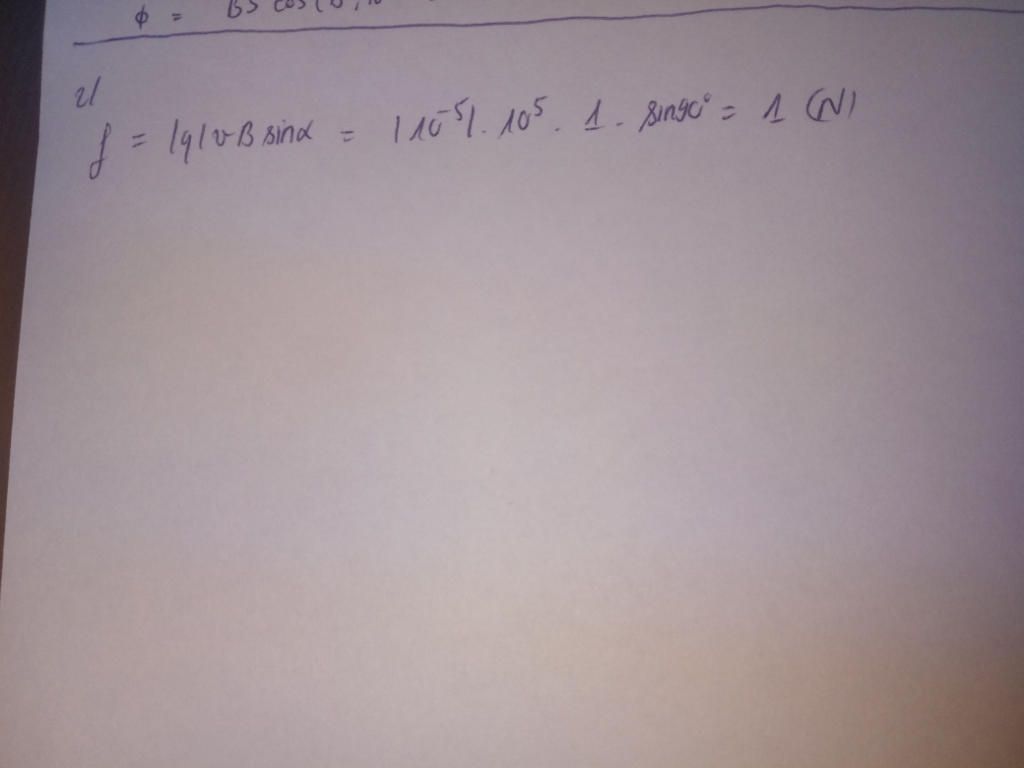 ϕ = BS cos(B,
2/
f = |q|vB sinα = |10⁻⁵|. 10⁵. 1. sin90° = 1 (N)